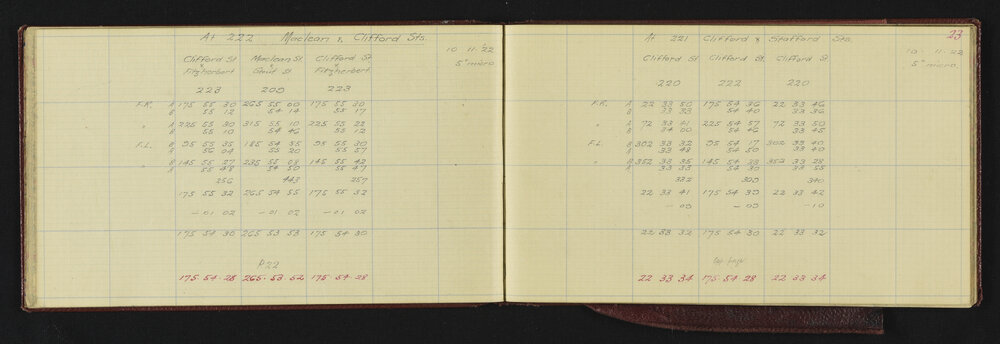 At 222 Maclean & Clifford Sts.
10 11 '22
Clifford St Maclean St Clifford St
& & &
Fitzherbert Grout St Fitzherbert
5" micro
223 209 223
F.R. A 175 55 30 265 55 00 175 55 30
B 55 12 54 14 55 17
" A 225 55 30 315 55 10 225 55 22
B 55 10 54 46 55 12
F.L. B 95 55 35 185 54 55 95 55 30
A 56 04 55 20 55 57
" B 145 55 27 235 55 03 145 55 42
A 55 48 54 50 55 47
256 443 259
175 55 32 265 54 55 175 55 32
-01 02 -01 02 -01 02
175 54 30 265 53 53 175 54 30
P22
175·54·28 265·53·52 175·54·28
23
At 221 Clifford & Stafford Sts.
10 · 11 · 22
Clifford St Clifford St Clifford St
5" micro
220 222 220
F.R. A 22 33 50 175 54 36 22 33 46
B 33 33 54 40 33 36
" A 72 33 41 225 54 57 72 33 50
B 34 00 54 46 33 45
F.L. B 302 33 32 95 54 17 302 33 40
A 33 48 54 50 33 40
" B 352 33 35 145 54 28 352 33 28
A 33 33 54 30 33 55
332 309 340
22 33 41 175 54 39 22 33 42
-09 -09 -10
22 33 32 175 54 30 22 33 32
22 33 34 175·54·28 22 33 34